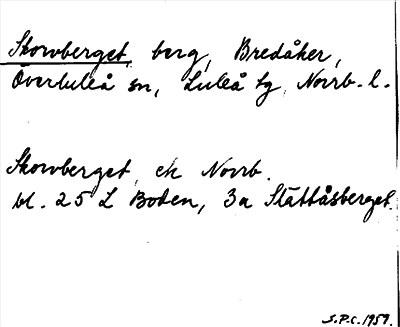 Skorvberget, berg, Bredåker,
Överluleå sn, Luleå tg, Norrb. l.
Skorvberget, ek Norrb.
bl. 25 L Boden, 3a Slåttåsberget.
S.P.C. 1959.